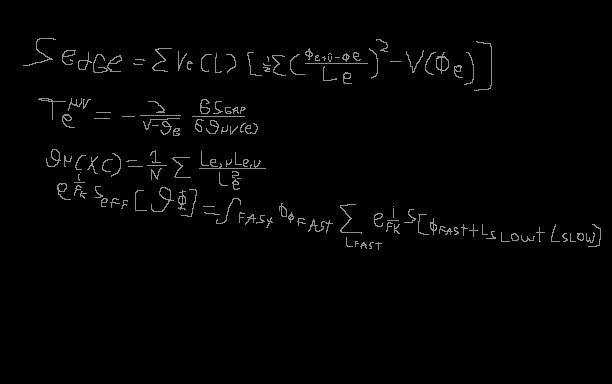 S edge = Σ Ve (L) [ ½ Σ ( (Φe+û - Φe) / Le )² - V(Φe) ]
Te^μν = - 2/√-ge δSGAP/δgμν(e)
gμ(xc) = 1/N Σ Le,μLe,ν / L²e
e^(i/ħk) Seff [gΦ] = ∫FAST DΦFAST Σ LFAST e^(i/ħk) S[ΦFAST + LSLOW + LSLOW]